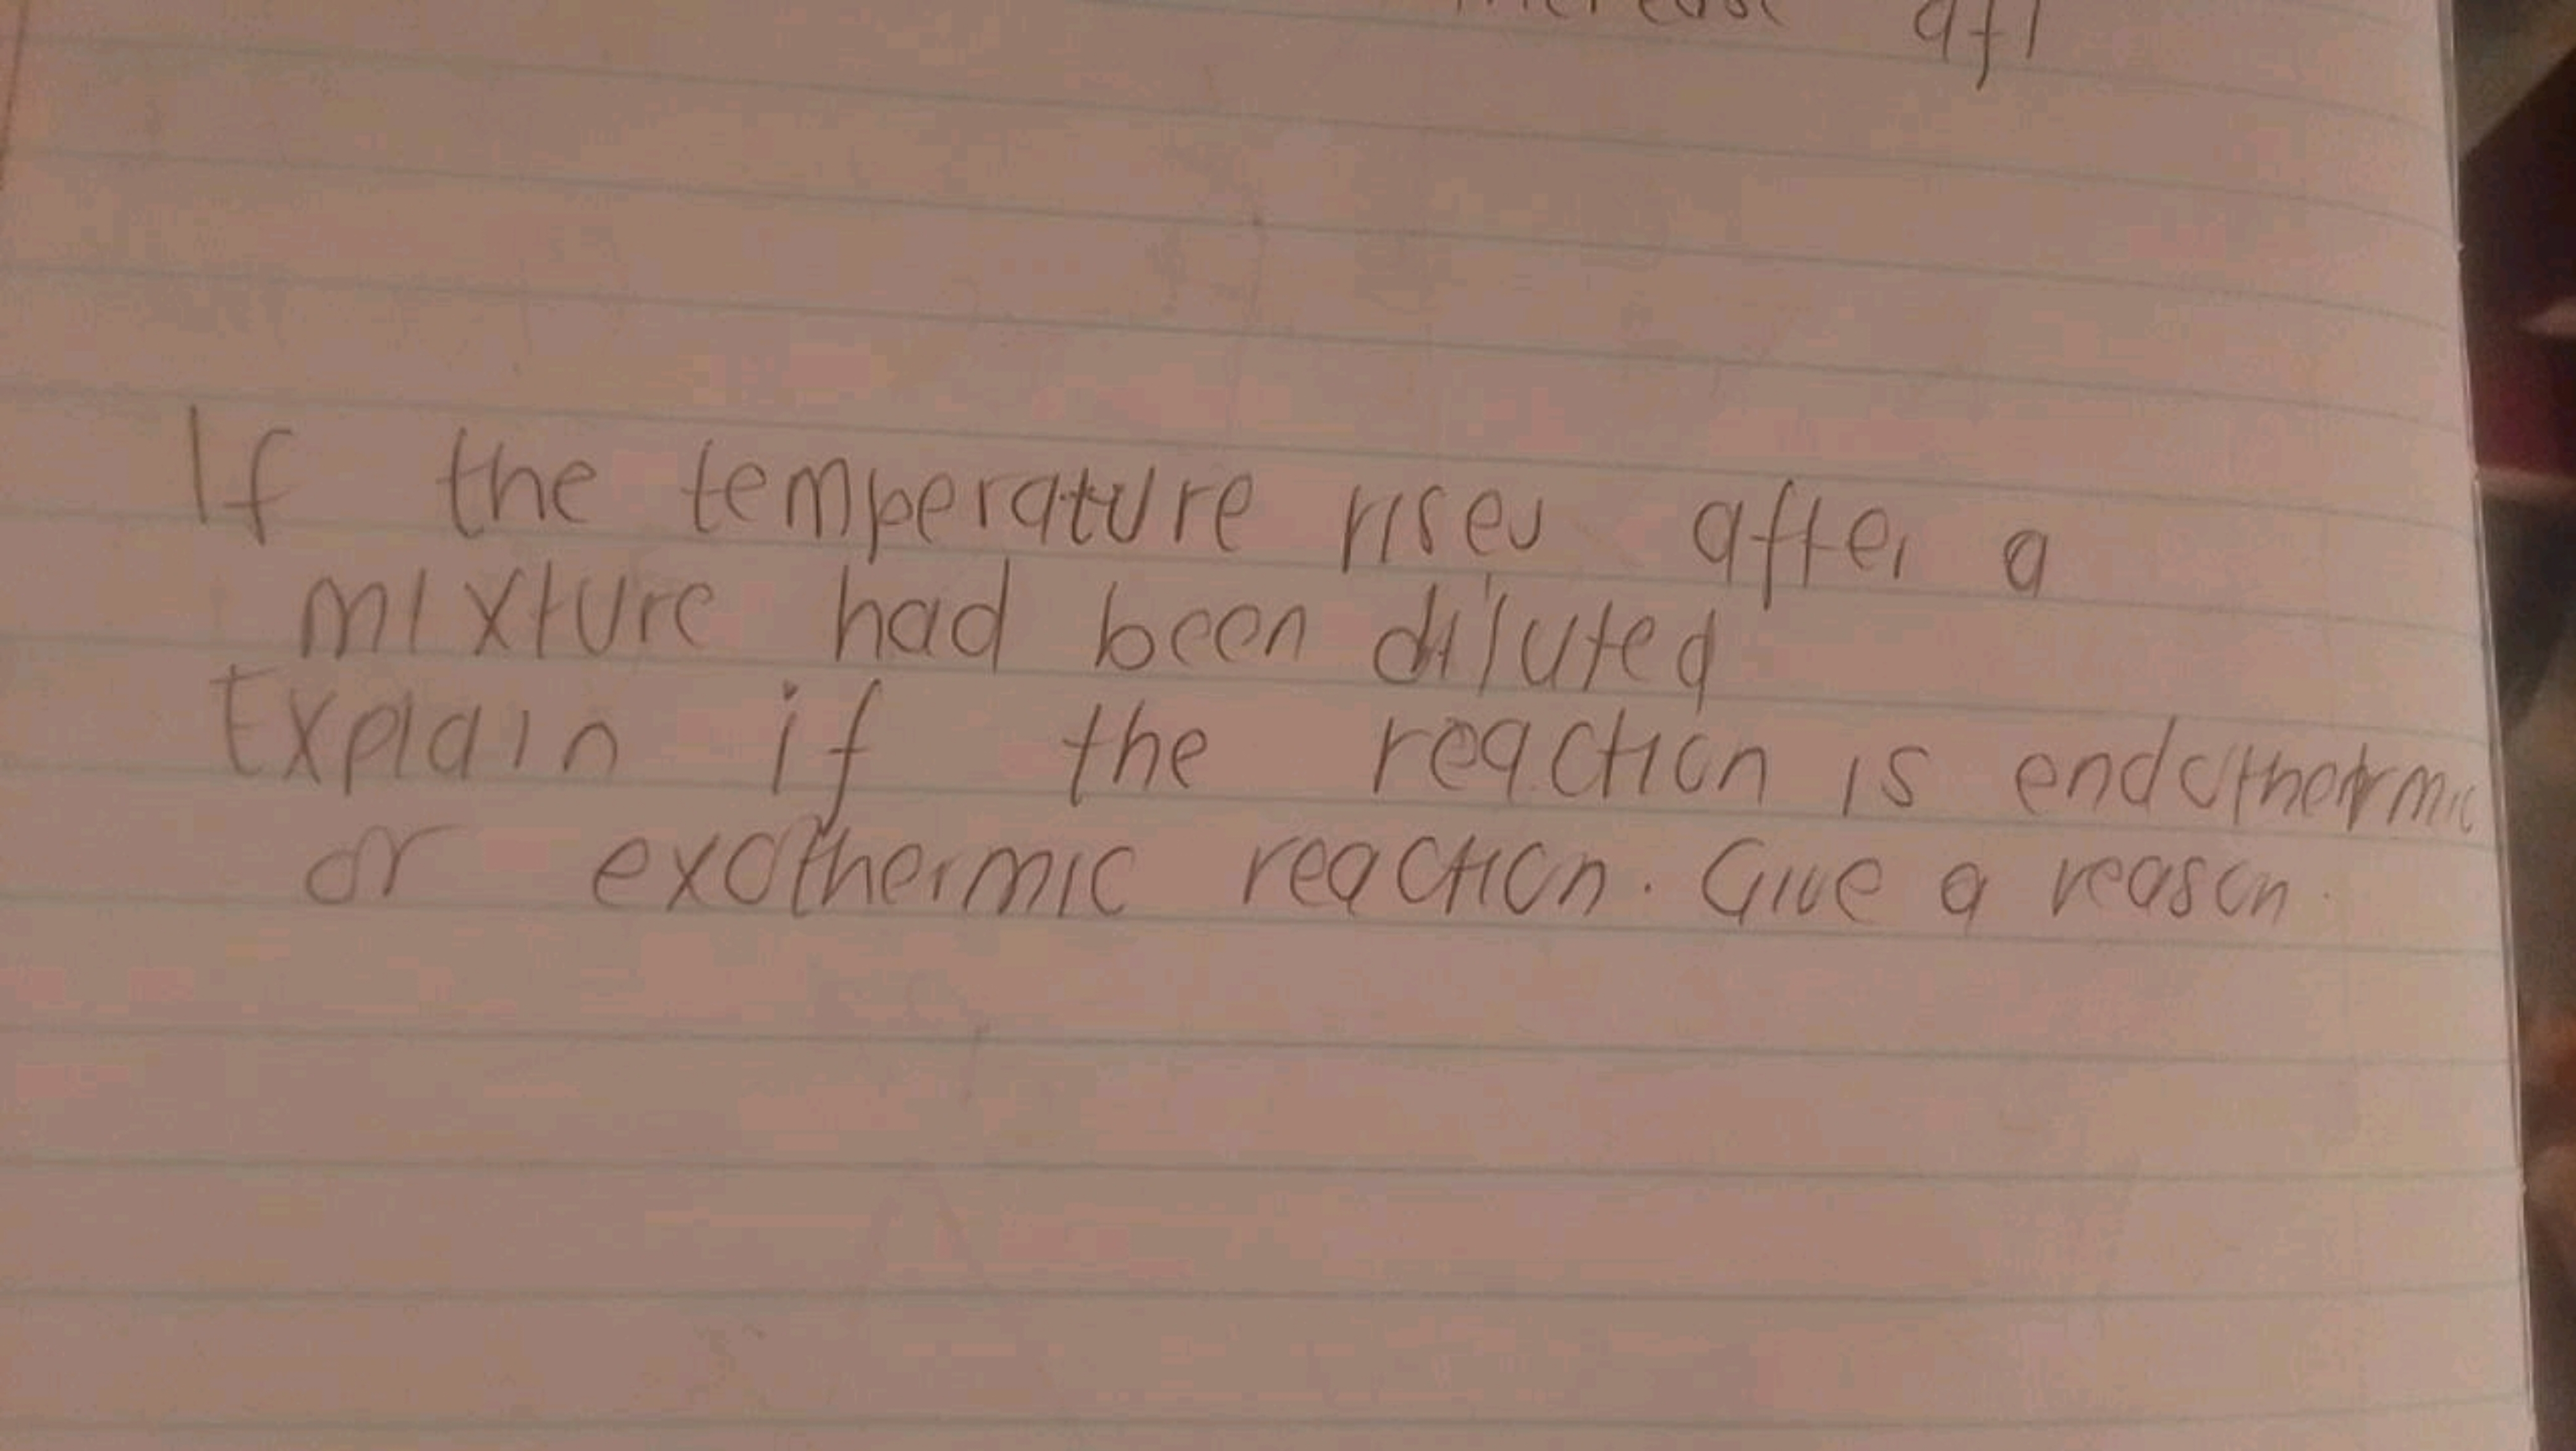 increase aft
If the temperature rises after a
mixture had been diluted
Explain if the reaction is endothermic
or exothermic reaction. Give a reason.